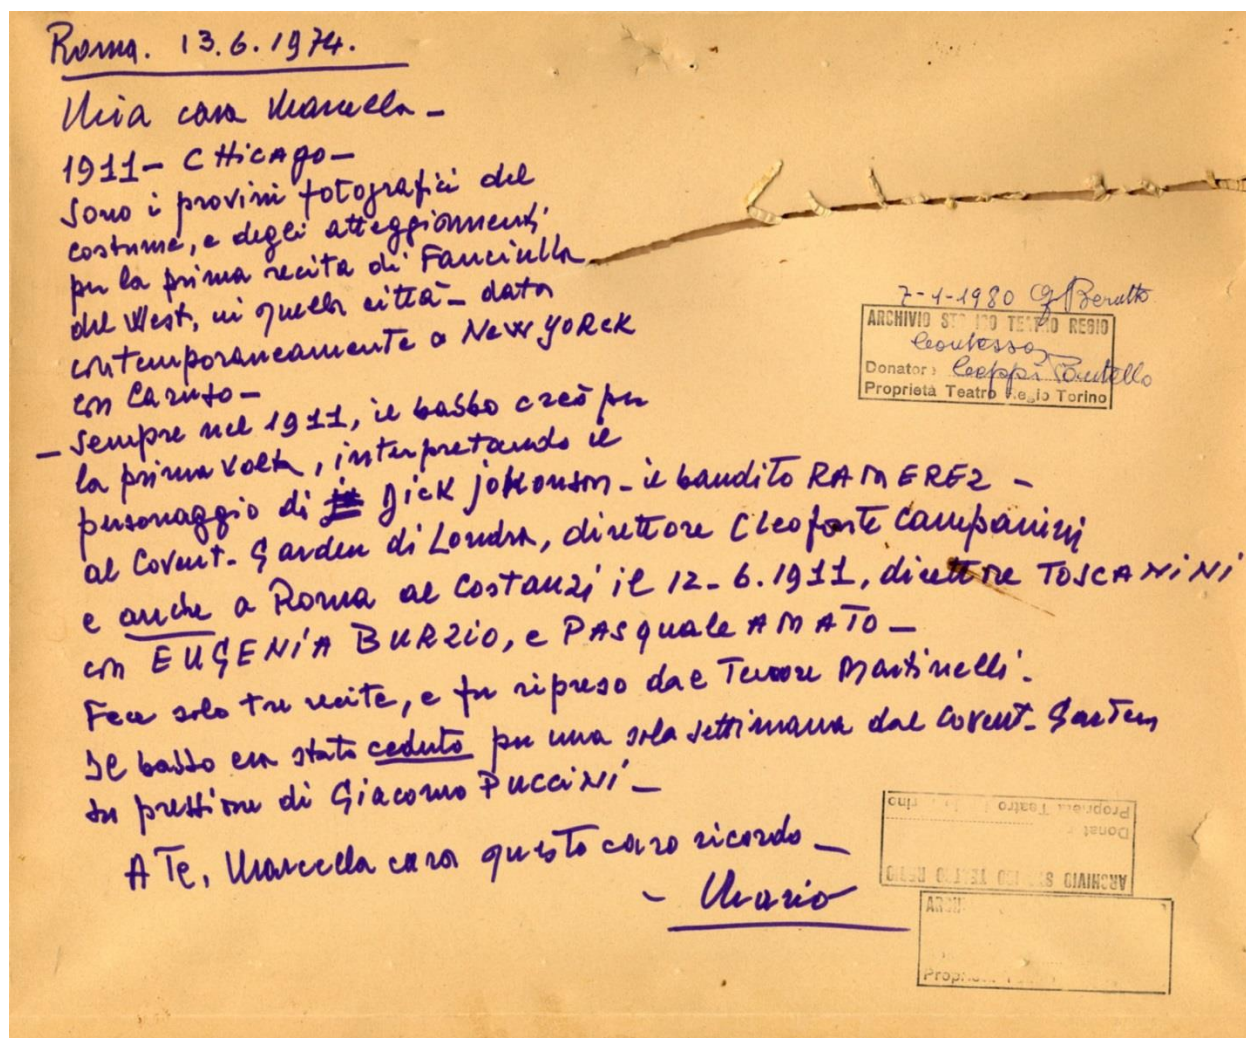 Roma. 13.6.1974.
Mia cara Marcella -
1911 - CHICAGO -
Sono i provini fotografici del
costume, e degli atteggiamenti
per la prima recita di Fanciulla
del West, in quella città - data
contemporaneamente a NEW YORCK
con Caruso -
- Sempre nel 1911, il babbo creò per
la prima volta, interpretando il
personaggio di Dick johonson - il bandito RAMEREZ -
al Covent-Garden di Londra, direttore Cleofonte Campanini
e anche a Roma al Costanzi il 12-6.1911, direttore TOSCANINI
con EUGENIA BURZIO, e PASquale AMATO -
Fece solo tre recite, e fu ripreso dal Tenore Martinelli.
Il babbo era stato ceduto per una sola settimana dal Covent-Garten
su pressione di Giacomo PUCCINI -
A Te, Marcella cara questo caro ricordo -
- Mario
7-1-1980 G Beratto
ARCHIVIO STORICO TEATRO REGIO
Contessa
Donatore Ceppi
Proprietà Teatro Regio Torino
ARCHIVIO STORICO TEATRO REGIO
Donat
Proprietà Teatro